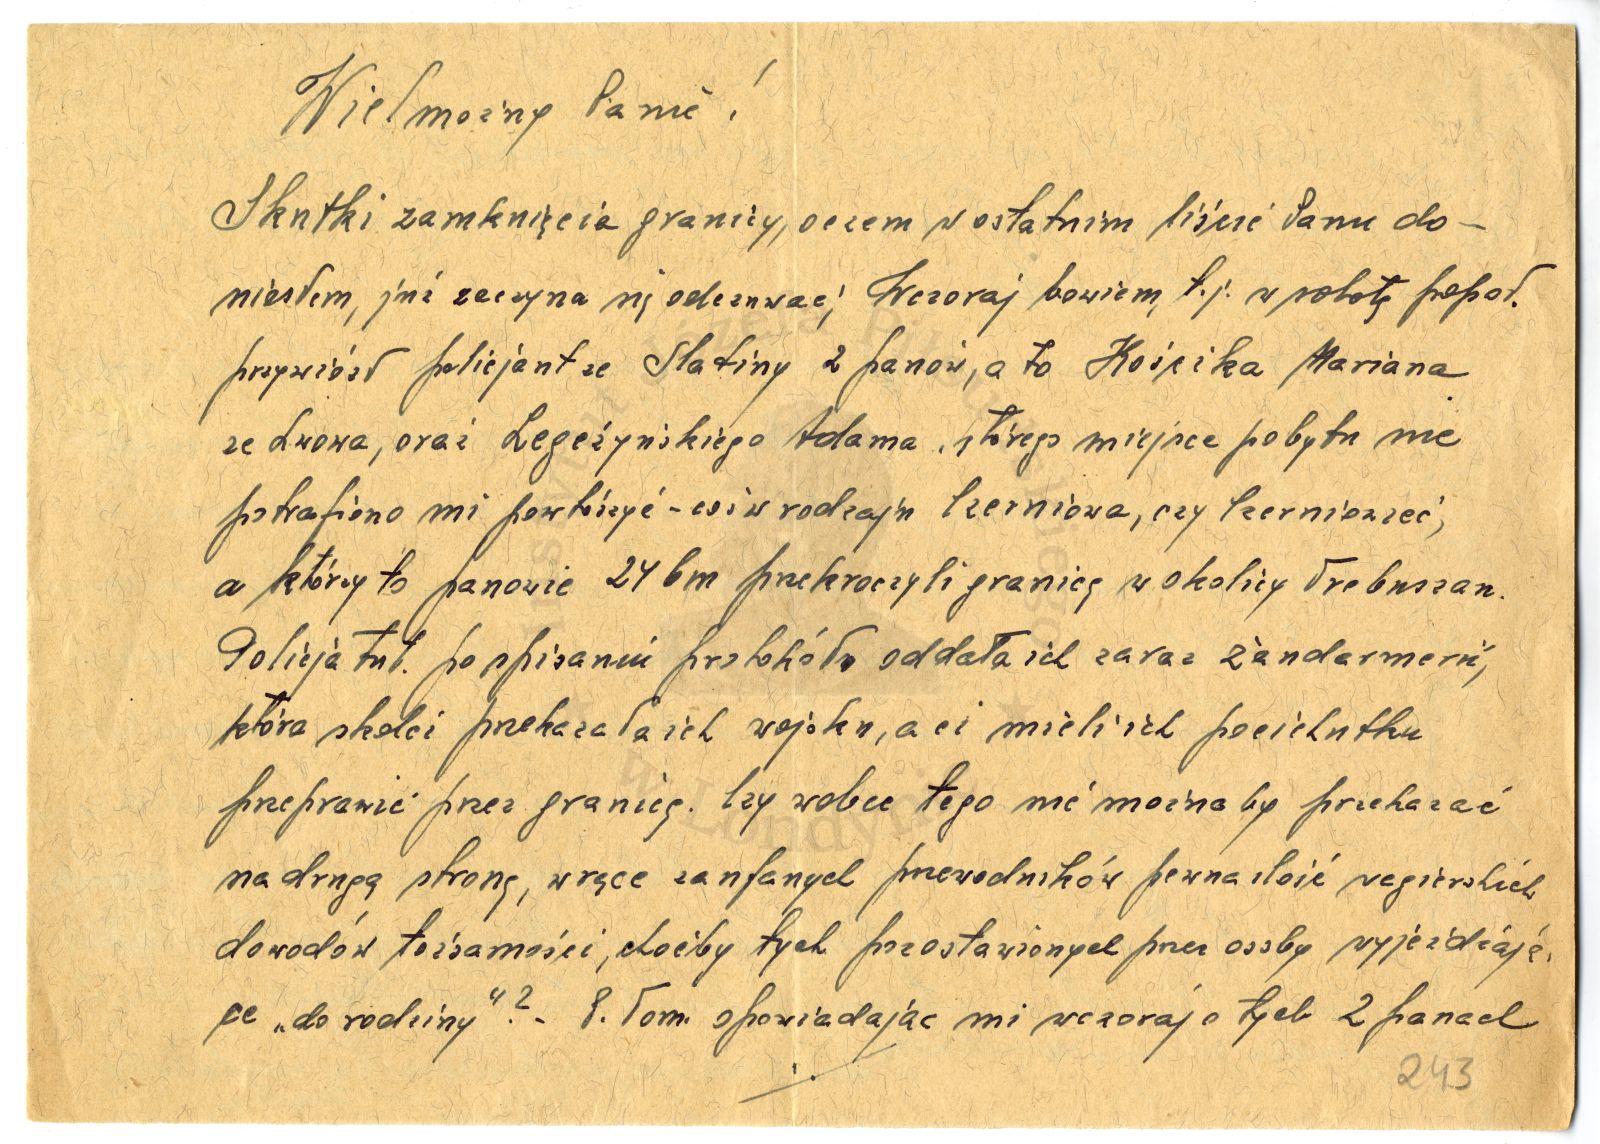 Wielmożny Panie!
Skutki zamknięcia granicy, oczem w ostatnim liście Panu do-
niosłem, już zaczyna się odczuwać; Wczoraj bowiem, t.j. w sobotę popoł.
przywiózł policjant ze Slatiny 2 panów, a to Kościka Mariana
ze Lwowa, oraz Legeżyńskiego Adama, którego miejsce pobytu nie
potrafiono mi powtórzyć - coś w rodzaju Czerniowa, czy Czerniowzec,
a którzy to panowie 24 bm przekroczyli granicę w okolicy Trebuszan.
Policja tut. po spisaniu protokółu oddała ich zaraz żandarmerii,
która skolei przekazała ich wojsku, a ci mieli ich pocichutku
przeprawić przez granicę. Czy wobec tego nie możnaby przekazać
na drugą stronę, w ręce zaufanych przewodników pewna ilość węgierskich
dowodów tożsamości, choćby tych pozostawionych przez osoby wyjeżdżają-
ce „do rodziny"? - P. Tom. opowiadając mi wczoraj o tych 2 panach
./.
243
Instytut Józefa Piłsudskiego
w Londynie